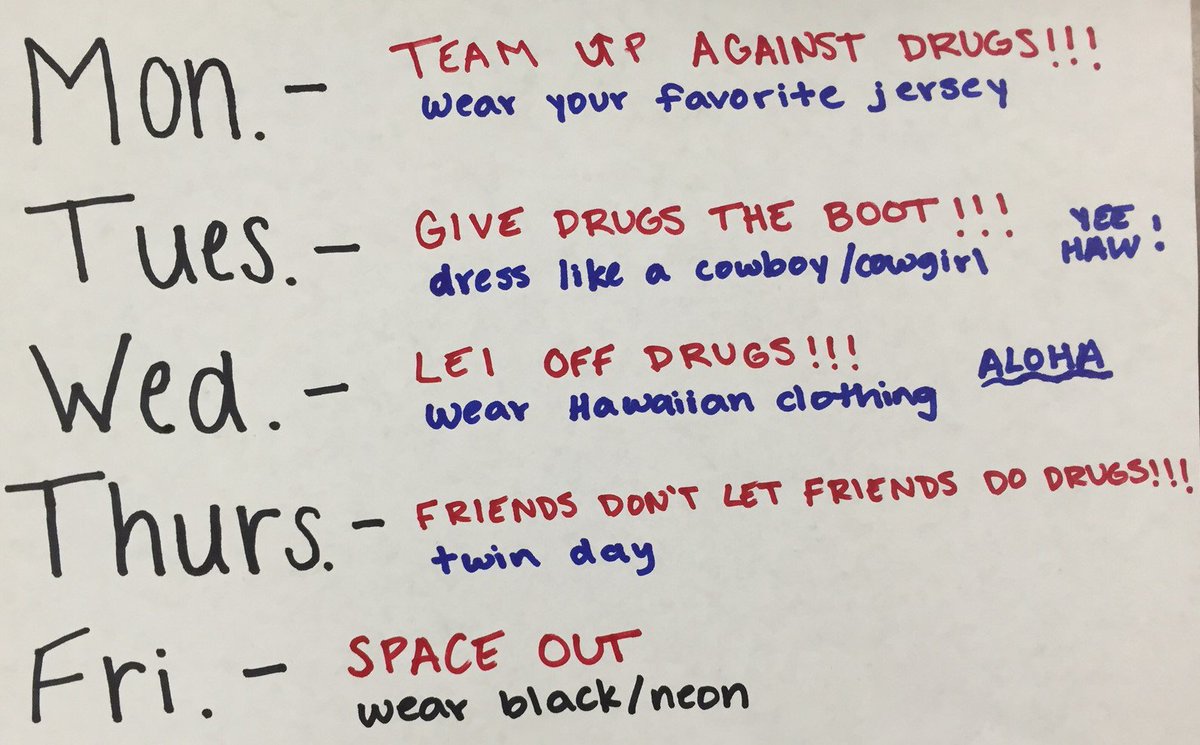 Mon. - TEAM UP AGAINST DRUGS!!!
wear your favorite jersey
Tues. - GIVE DRUGS THE BOOT!!!
dress like a cowboy/cowgirl
YEE
HAW!
Wed. - LEI OFF DRUGS!!!
wear Hawaiian clothing
ALOHA
Thurs. - FRIENDS DON'T LET FRIENDS DO DRUGS!!!
twin day
Fri. - SPACE OUT
wear black/neon